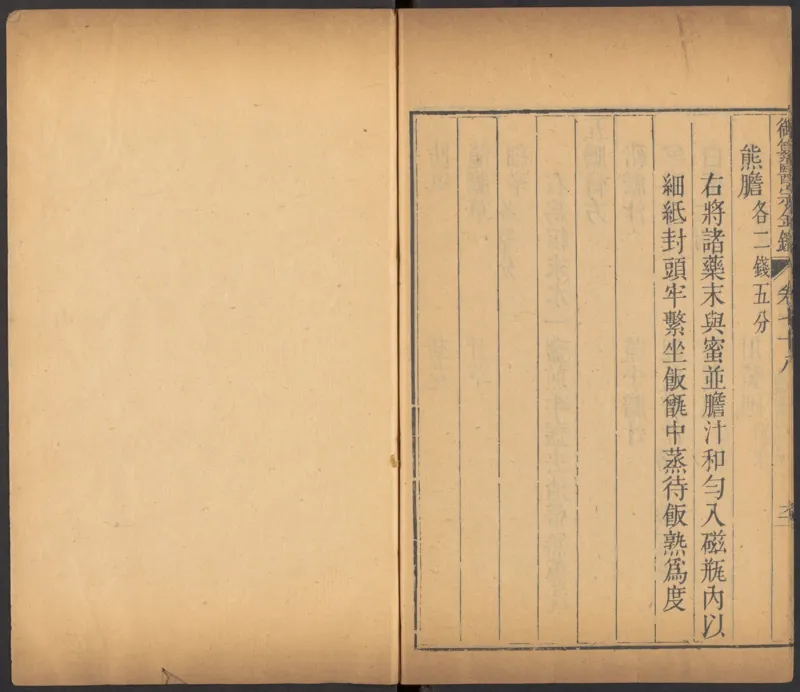 御纂醫宗金鑑 卷七十八
熊膽各二錢五分
右將諸藥末與蜜並膽汁和勻入磁瓶內以
細紙封頭牢繫坐飯甑中蒸待飯熟為度